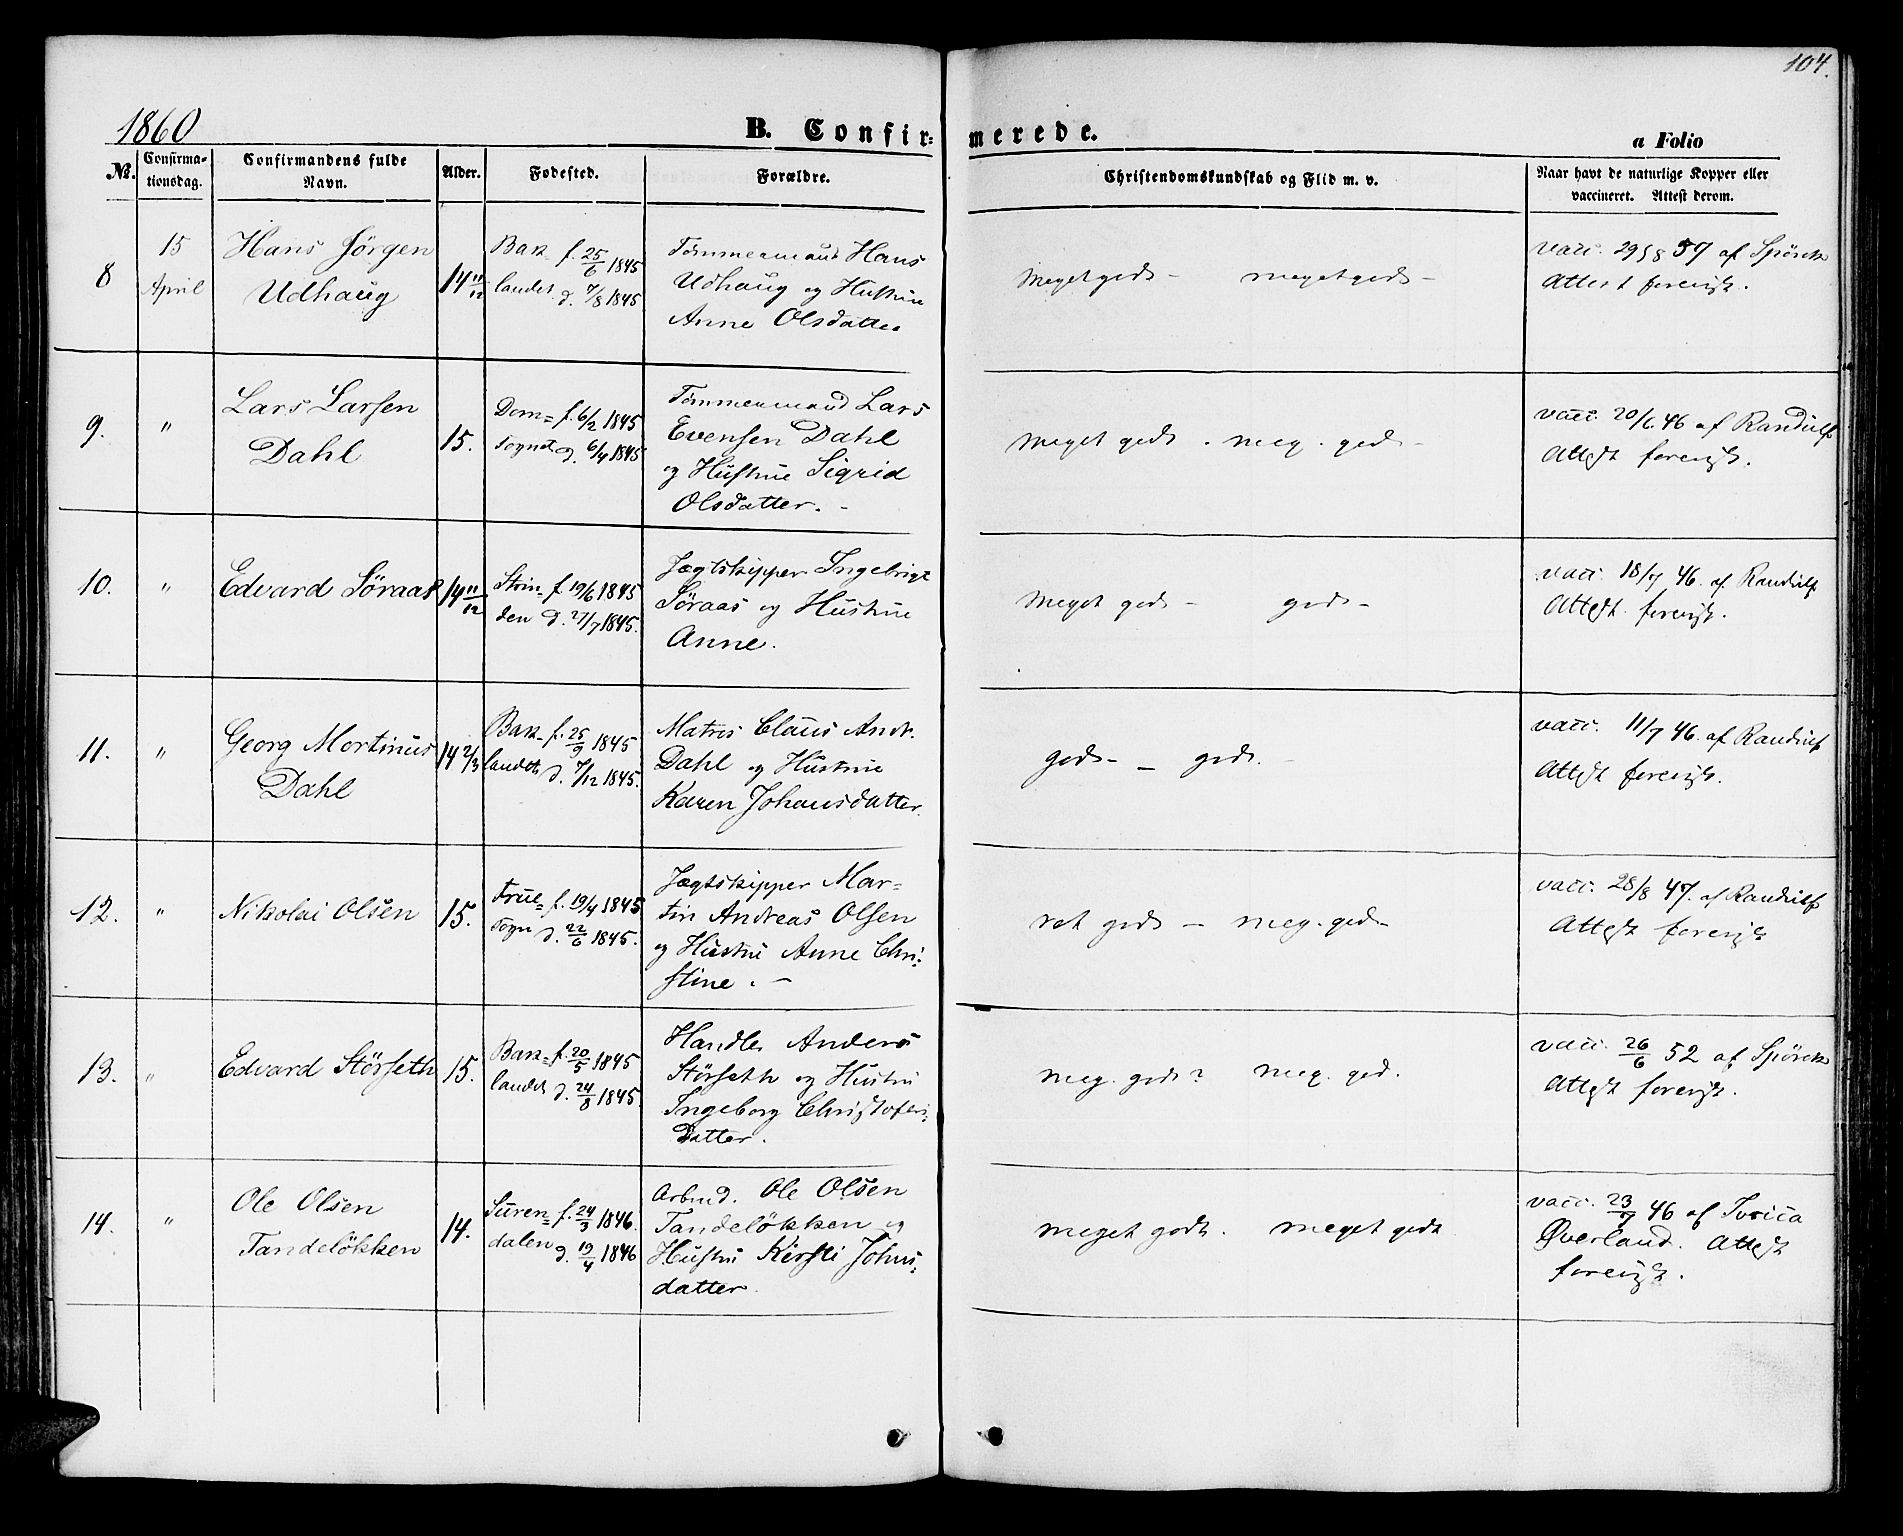 104.
1860
B. Confirmerede.
a Folio
No.
Confirmationsdag.
Confirmandens fulde Navn.
Alder.
Fødested.
Forældre.
Christendomskundskab og Flid m. v.
Naar havt de naturlige Kopper eller
vaccineret. Attest derom.
8
15
April
Hans Jörgen
Udhaug
14 11/12
Bak-
landet
f. 25/6 1845
d. 7/8 1845
Tömmermand Hans
Udhaug og Hustrue
Anne Olsdatter
Meget godt - meget godt -
vacc. 57 af Spörck
Attest forevist.
9.
"
Lars Larsen
Dahl
15.
Dom=
Sognet
f. 6/2 1845
d. 6/4 1845
Tömmermand Lars
Evensen Dahl
og Hustrue Sigrid
Olsdatter. -
Meget godt. meg. godt -
vacc. 20/6 46 af Randulf
Attest forevist.
10.
"
Edvard Söraas
14 11/12
Strin=
den
f. 19/6 1845
d. 27/7 1845.
Jægtskipper Ingebrigt
Söraas og Hustrue
Anne.
Meget godt - godt -
vacc. 18/7 46. af Randulf
Attest. forevist.
11.
"
Georg Martinus
Dahl
14 2/3
Bak-
landet
f. 25/9 1845
d. 7/12 1845.
Matros Claus Andr.
Dahl og Hustrue
Karen Johansdatter.
godt - - godt. -
vacc. 11/7 46. af Randulf
Attest forevist.
12.
"
Nikolai Olsen
15.
Frue=
Sogn
f. 19/4 1845
d. 22/6 1845.
Jægtskipper Mar=
tin Andreas Olsen
og Hustru Anne Chri=
stine. -
ret godt - meg. godt -
vacc. 28/8 47. af Randulf
Attest forevist
13.
"
Edvard Störseth
15.
Bak=
landet
f. 20/5 1845
d. 24/8 1845.
Handler Anders
Störseth og Hustru
Ingeborg Christofers=
datter.
meg. godt? meg. god.
vacc. 26/6 52 af Spörck
Attest forevist.
14.
"
Ole Olsen
Tandelökken
14.
Suren=
dalen
f. 24/3 1846.
d. 19/4 1846
Arbmd. Ole Olsen
Tandelökken og
Hustru Kirsti Johns=
datter.
meget godt. meget godt
vacc. 23/7 46 af
Øverland. Attest
forevist.